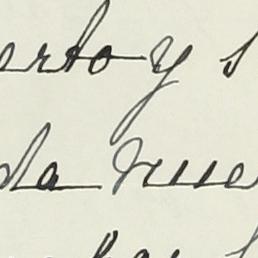 erto y s
da nue